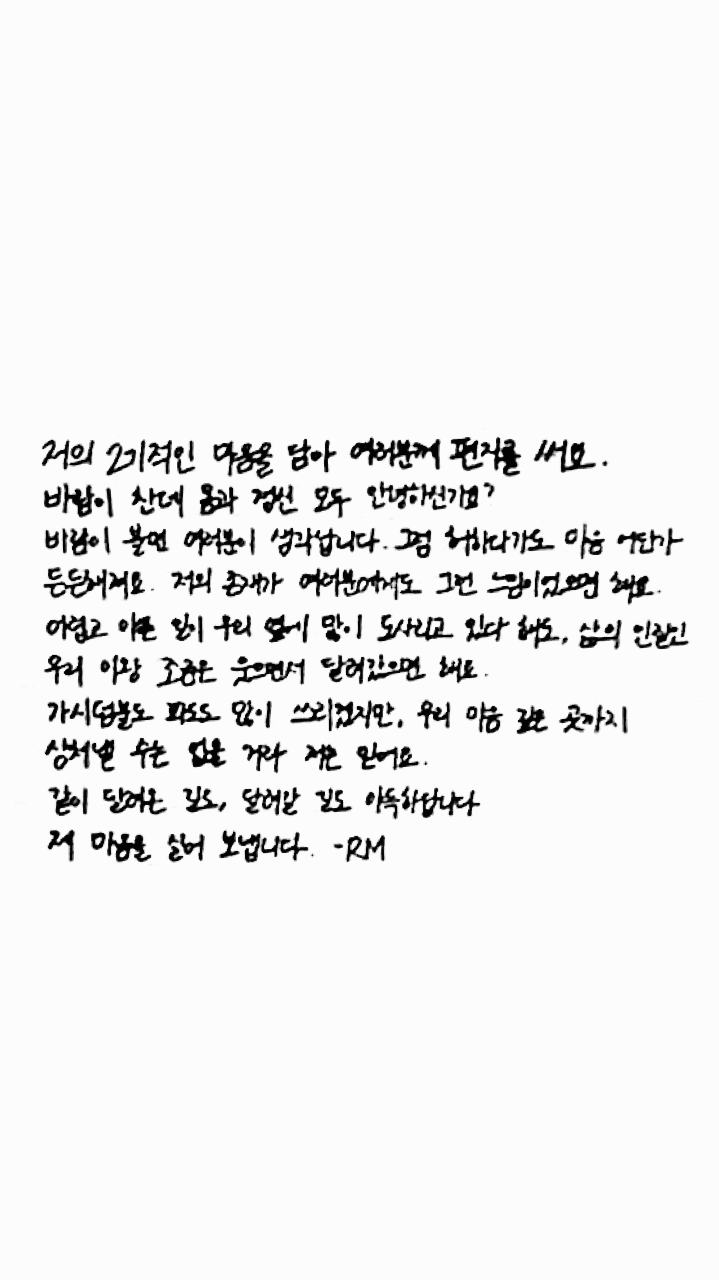 저의 2기적인 마음을 담아 여러분께 편지를 써요.
바람이 찬데 몸과 정신 모두 안녕하신가요?
바람이 불면 여러분이 생각납니다. 그럼 허하다가도 마음 어딘가
든든해져요. 저의 존재가 여러분에게도 그런 느낌이었으면 해요.
어렵고 아픈 일이 우리 옆에 많이 도사리고 있다 해도, 삶의 인질인
우리 이왕 조금은 웃으면서 달려갔으면 해요.
가시덤불도 파도도 많이 쓰리겠지만, 우리 마음 깊은 곳까지
상처낼 수는 없을 거라 저는 믿어요.
같이 달려온 길도, 달려갈 길도 아득하답니다
저 마음을 실어 보냅니다. -RM